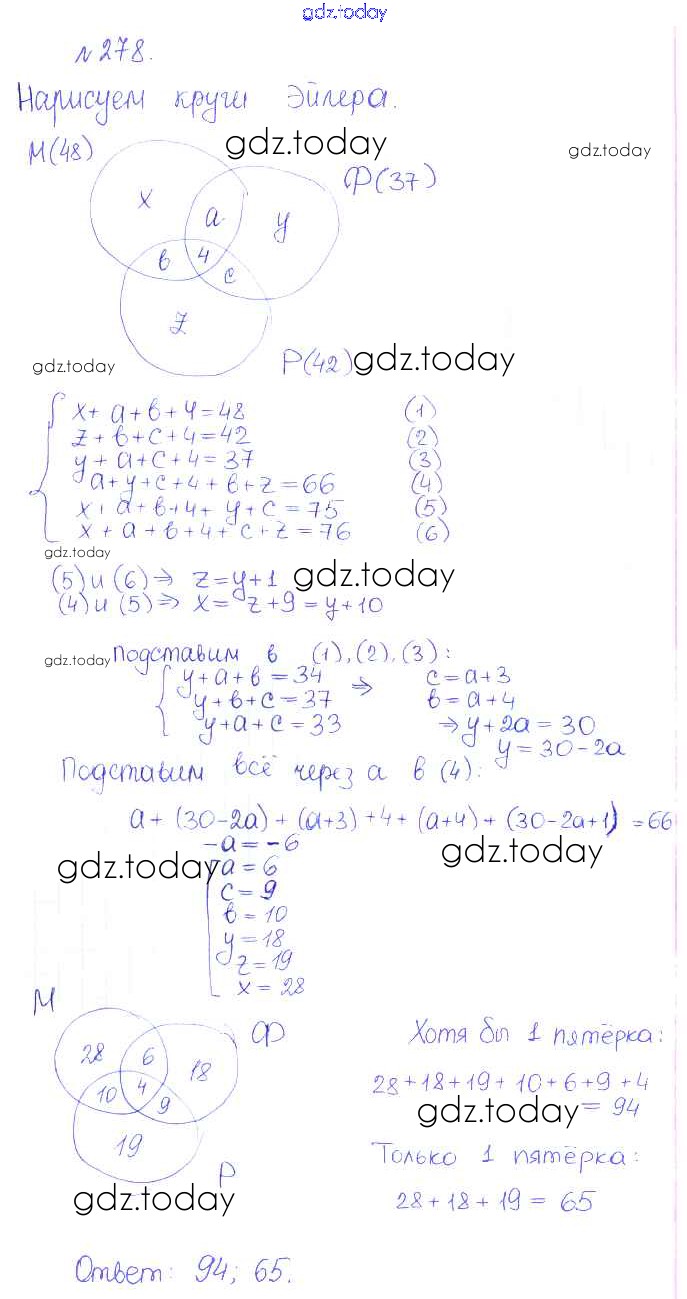 gdz.today
№278.
Нарисуем круги Эйлера.
М(48)
gdz.today
gdz.today
Ф(37)
x
a
y
в
4
c
z
gdz.today
Р(42)
gdz.today
x + a + в + 4 = 48 (1)
z + в + c + 4 = 42 (2)
y + a + c + 4 = 37 (3)
a + y + c + 4 + в + z = 66 (4)
x + a + в + 4 + y + c = 75 (5)
x + a + в + 4 + c + z = 76 (6)
gdz.today
(5) и (6) ⇒ z = y + 1
gdz.today
(4) и (5) ⇒ x = z + 9 = y + 10
gdz.today
подставим в (1), (2), (3):
y + a + в = 34 ⇒ c = a + 3
y + в + c = 37 в = a + 4
y + a + c = 33 ⇒ y + 2a = 30
y = 30 - 2a
Подставим всё через a в (4):
a + (30 - 2a) + (a + 3) + 4 + (a + 4) + (30 - 2a + 1) = 66
-a = -6
gdz.today
gdz.today
a = 6
c = 9
в = 10
y = 18
z = 19
x = 28
М
Ф
28
6
18
10
4
9
19
Р
gdz.today
Хотя бы 1 пятёрка:
28 + 18 + 19 + 10 + 6 + 9 + 4
gdz.today
= 94
Только 1 пятёрка:
28 + 18 + 19 = 65
gdz.today
Ответ: 94; 65.